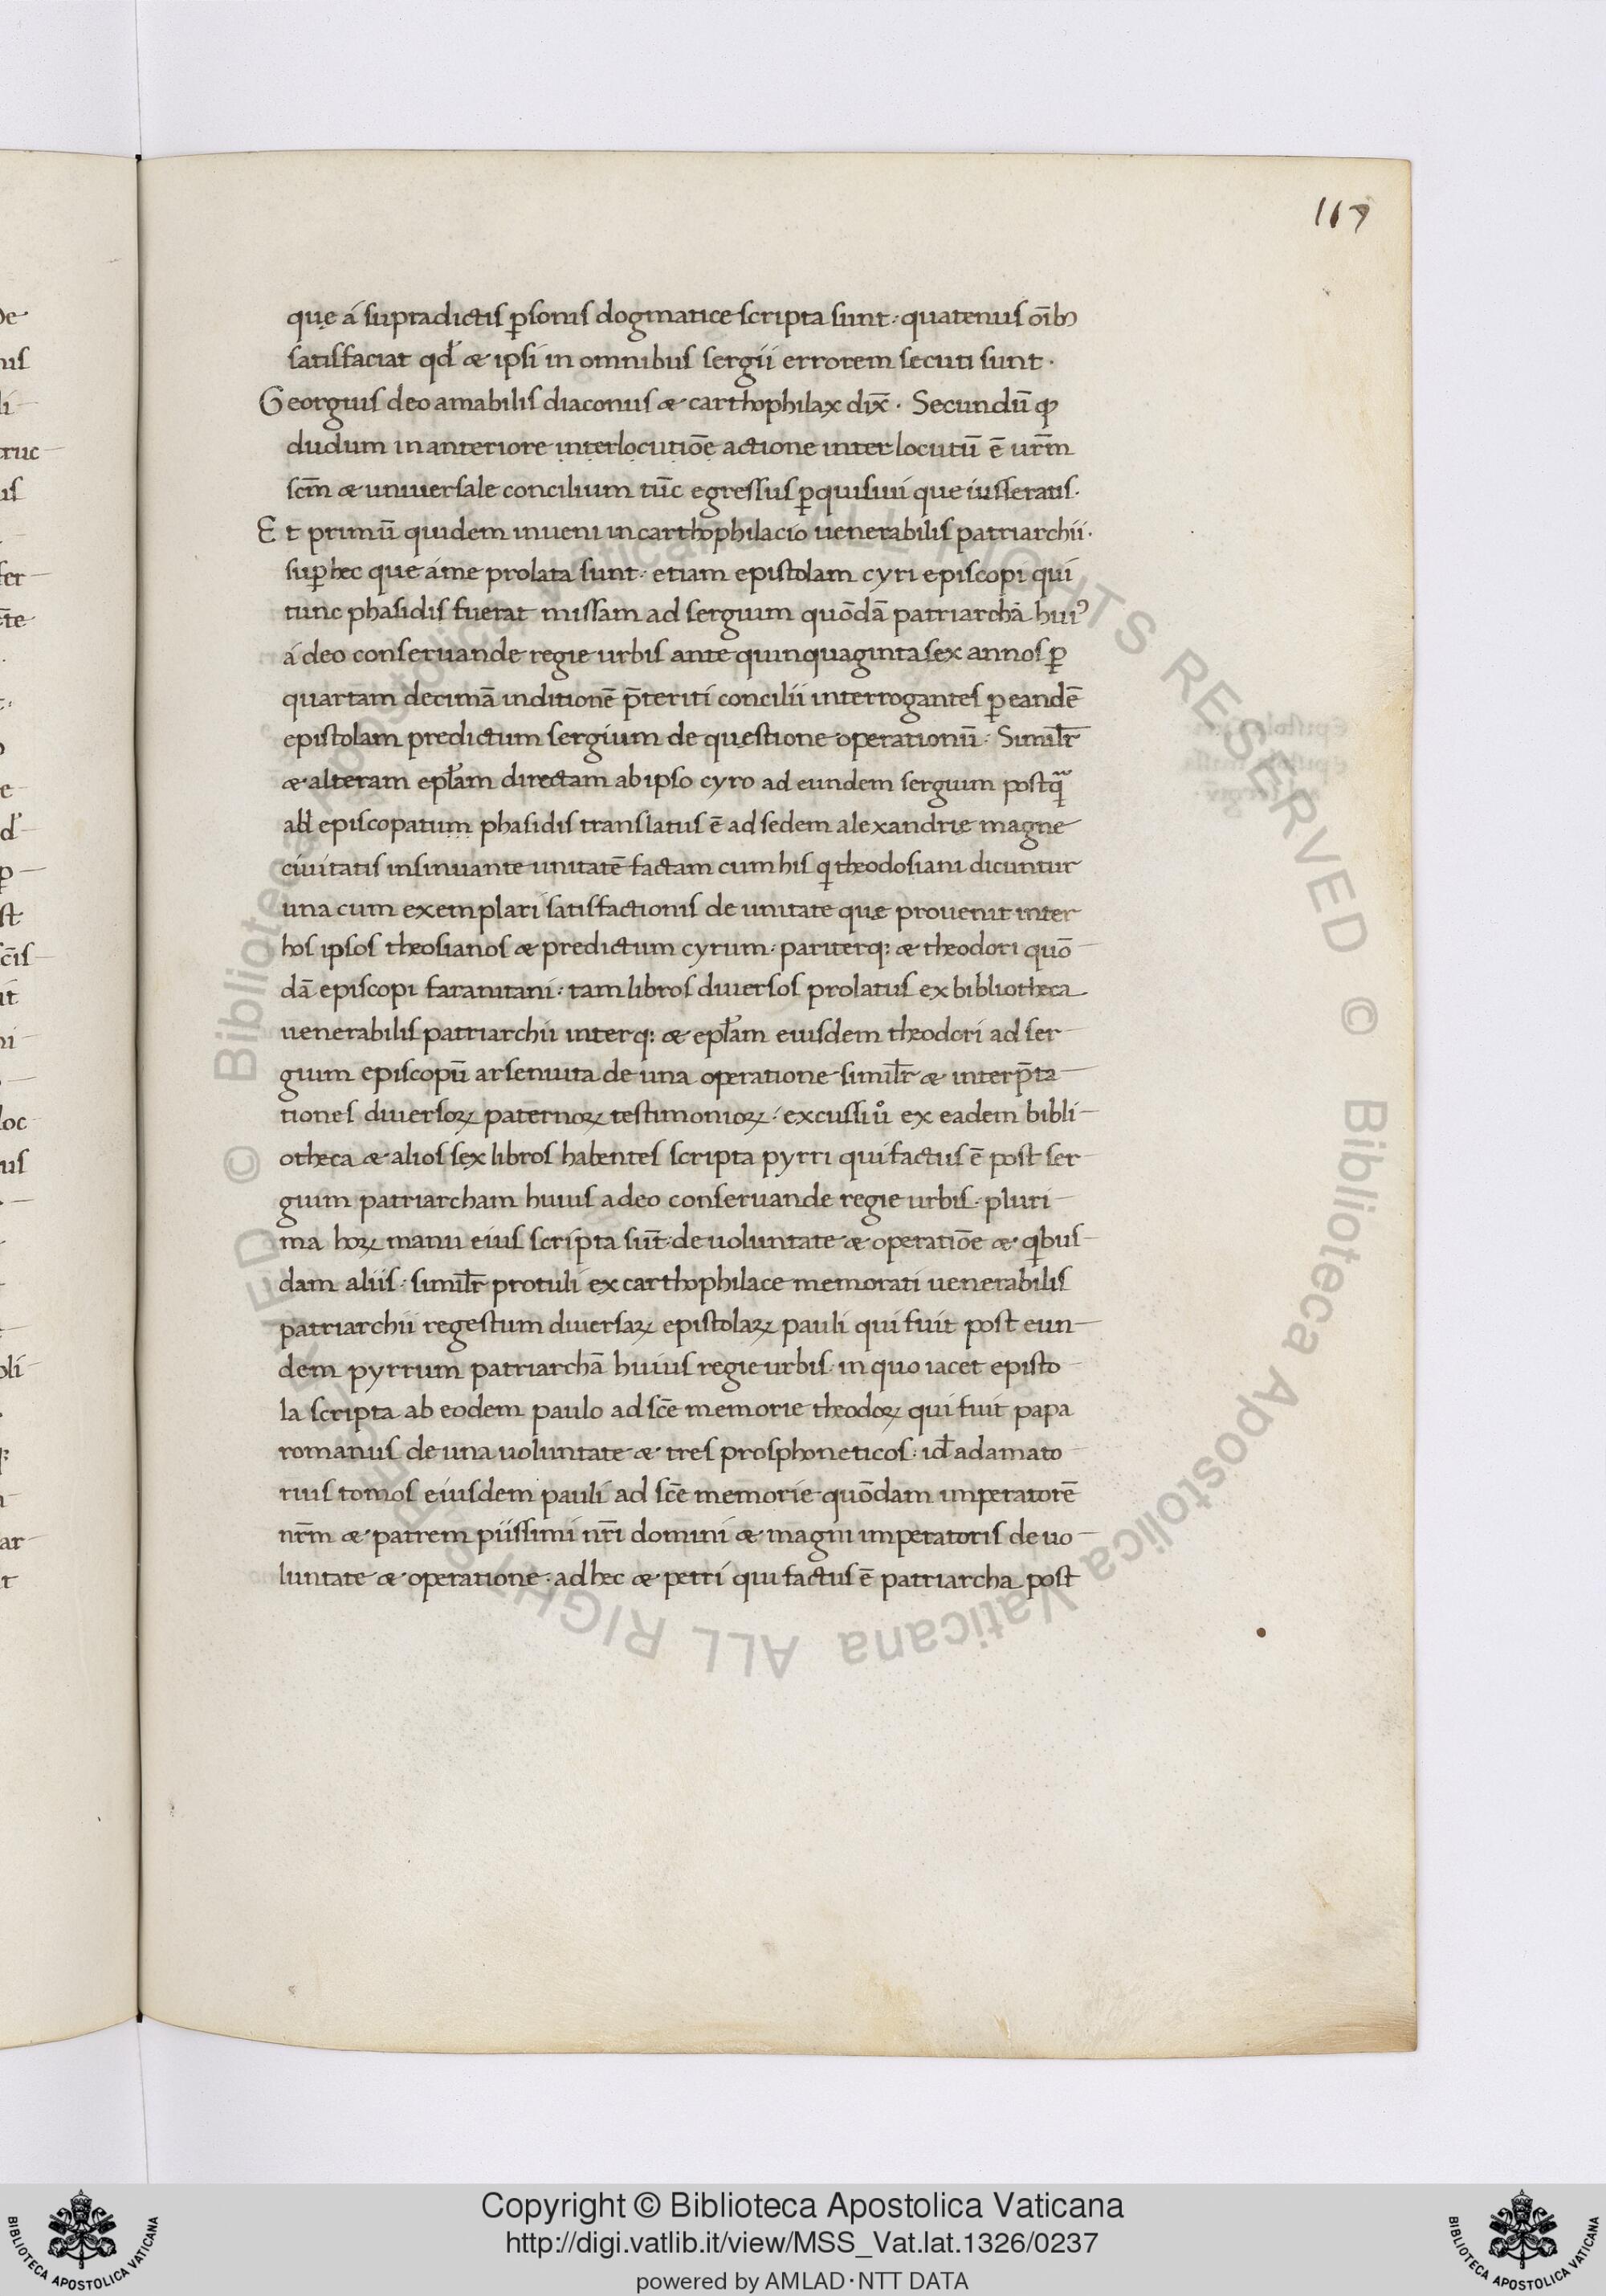 117
que á supradictis ꝑsonis dogmatice scripta sunt · quatenus oı̄bꝫ
satisfaciat qd́ & ipsi in omnibus sergii errorem secuti sunt ·
Georgius deo amabilis diaconus & carthophilax dix̄ · Secundū ꝙ
dudum in anteriore interlocutiōe actione inter locutū ē ur̄m
sc̄m & uniuersale concilium tūc egressus ꝑquisiui que iusseratis ·
Et primū quidem inueni in carthophilacio uenerabilis patriarchii ·
suꝑ hec que á me prolata sunt · etiam epistolam cyri episcopi qui
tunc phasidis fuerat missam ad sergium quōdā patriarchā huiꝰ
á deo conseruande regie urbis ante quinquaginta sex annos ꝑ
quartam decimā inditionē p̄teriti concilii interrogantes ꝑ eandē
epistolam predictum sergium de questione operationū · Simil̄r
& alteram epl̄am directam ab ipso cyro ad eundem sergium postqͣ
abl episcopatum phasidis translatus ē ad sedem alexandrie magne
ciuitatis insinuante unitatē factam cum his qͥ theodosiani dicuntur
una cum exemplari satisfactionis de unitate que prouenit inter
hos ipsos theosianos & predictum cyrum · pariterq: & theodori quō
dā episcopi faranitani · tam libros diuersos prolatus ex bibliotheca
uenerabilis patriarchii interq: & epl̄am eiusdem theodori ad ser
gium episcopū arsenuita de una operatione simil̄r & interp̄ta
tiones diuersoꝝ paternoꝝ testimonioꝝ · excussi uͦ ex eadem bibli
otheca & alios sex libros habentes scripta pyrri qui factus ē post ser
gium patriarcham huius a deo conseruande regie urbis · pluri
ma hoꝝ manu eius scripta sūt · de uoluntate & operatiōe & qͥbus
dam aliis · simil̄r protuli ex carthophilace memorati uenerabilis
patriarchii regestum diuersaꝝ epistolaꝝ pauli qui fuit post eun
dem pyrrum patriarchā huius regie urbis · in quo iacet episto
la scripta ab eodem paulo ad sc̄e memorie theodoꝝ qui fuit papa
romanus de una uoluntate & tres prosphoneticos · id̄ adamato
rius tomos eiusdem pauli ad sc̄e memorie quōdam imperatorē
nr̄m & patrem piissimi nr̄i domini & magni imperatoris de uo
luntate & operatione · ad hec & petri qui factus ē patriarcha post
Copyright © Biblioteca Apostolica Vaticana
http://digi.vatlib.it/view/MSS_Vat.lat.1326/0237
powered by AMLAD·NTT DATA